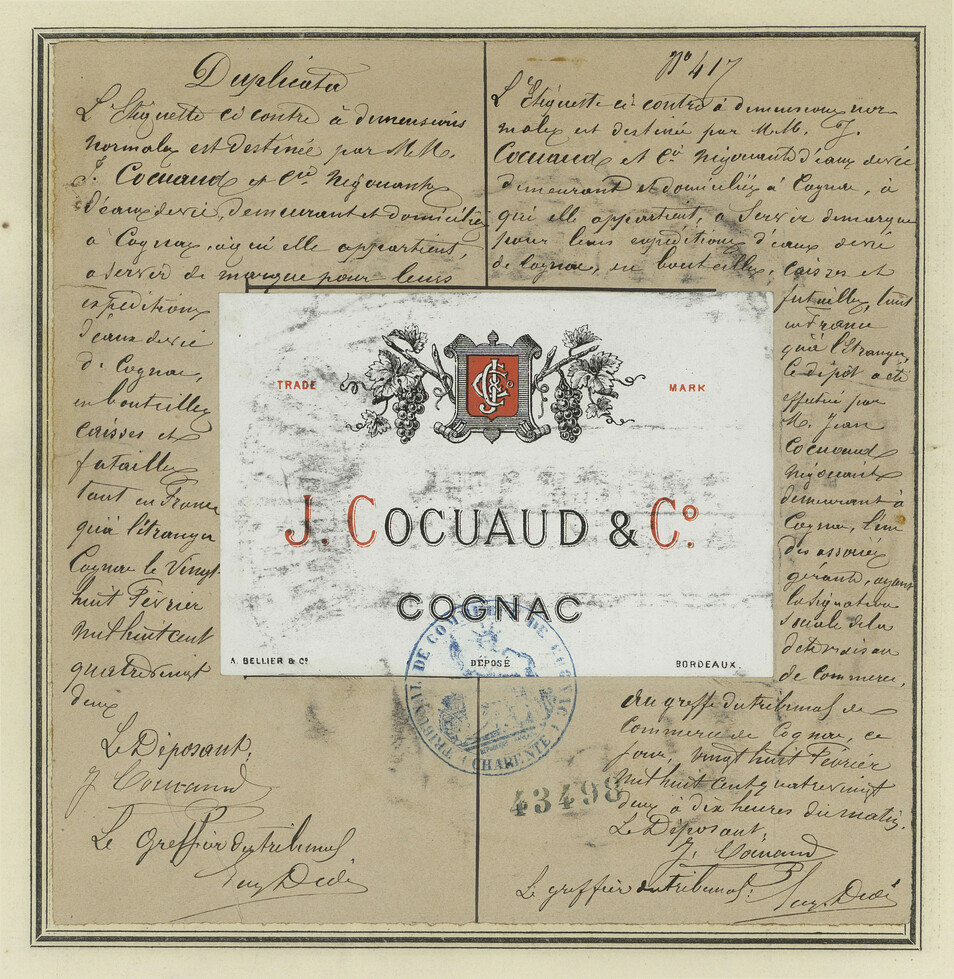 Duplicata
L'Etiquette ci contre à dimensions
normales est destinée par M.M.
J. Cocuaud et Cie Négociants
d'eaux de vie, demeurant et domiciliés
à Cognac, à qui elle appartient,
a servir de marque pour leurs
expéditions
d'eaux de vie
de Cognac,
en bouteilles
caisses et
futailles
tant en France
qu'à l'étranger
Cognac le Vingt
huit Février
mil huit cent
quatre vingt
deux
Le Déposant:
J Cocuaud
Le Greffier du tribunal
Nº 417
L'Etiquette ci contre à dimensions nor
males est destinée par M.M. J.
Cocuaud et Cie Négociants d'eaux de vie
demeurant et domiciliés à Cognac, à
qui elle appartient, a servir de marque
pour leurs expéditions d'eaux de vie
de Cognac, en bouteilles, caisses et
futailles, tant
en France
qu'à l'étranger,
Ce dépôt a été
effectué par
M. Jean
Cocuaud
Négociant
demeurant à
Cognac, l'un
des associés
gérants, ayant
la signature
sociale de la
dite maison
de Commerce,
Au greffe du tribunal de
Commerce de Cognac, ce
jour, vingt huit Février
mil huit cent quatre vingt
deux à dix heures du matin.
Le Déposant
J. Cocuaud
Le greffier du tribunal:
TRADE
MARK
J. COCUAUD & Cº.
COGNAC
A. BELLIER & Cº
DÉPOSÉ
BORDEAUX.
TRIBUNAL DE COMMERCE DE COGNAC
(CHARENTE)
43498